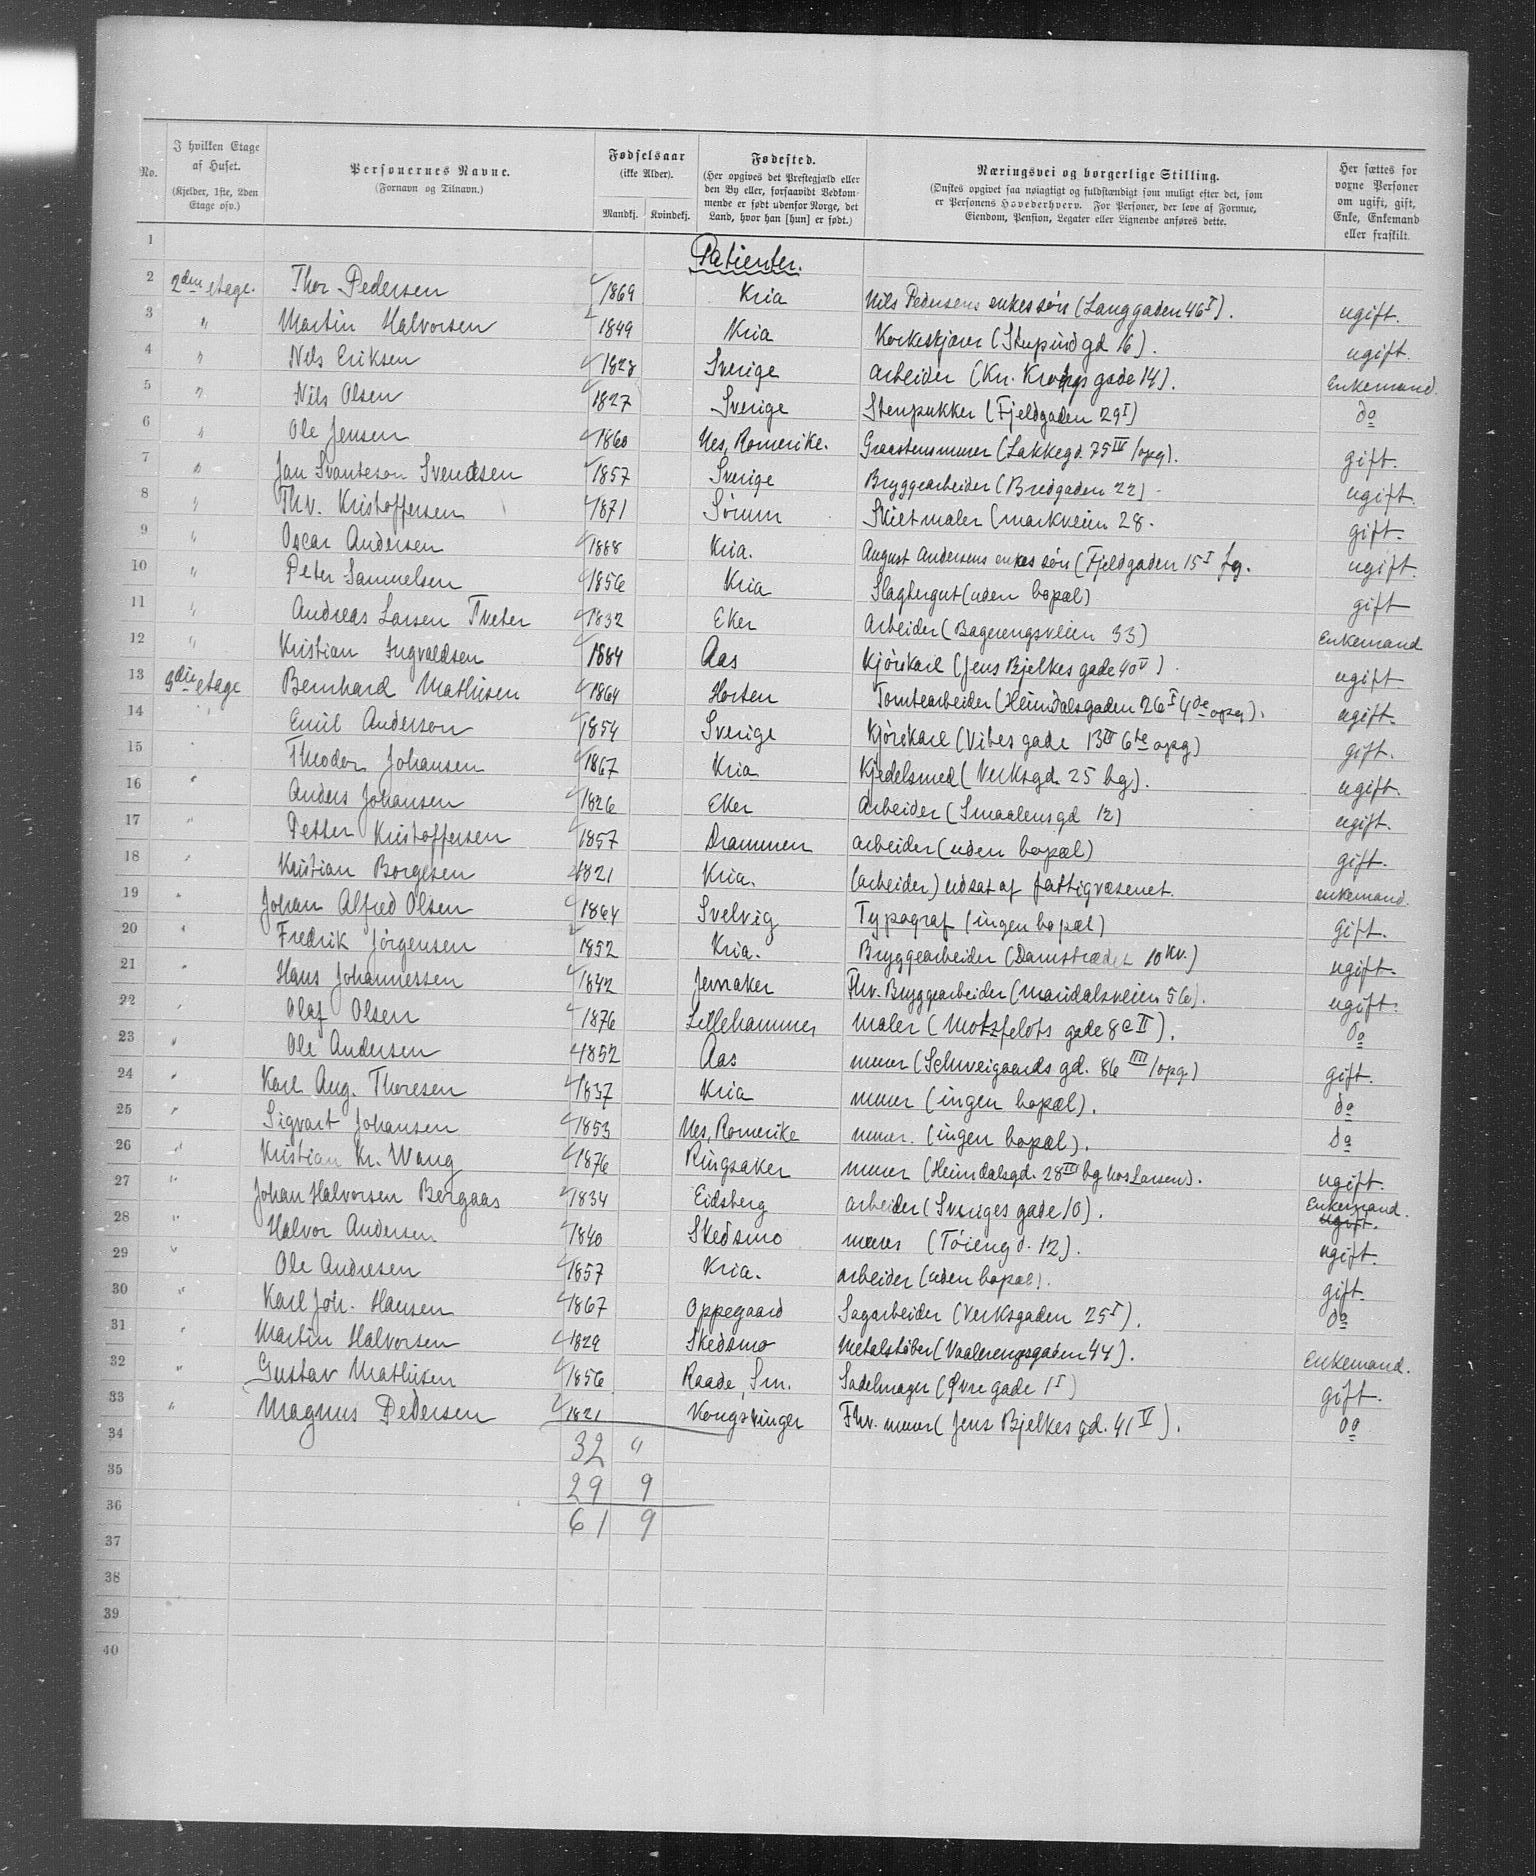 No.
I hvilken Etage af Huset. (Kjelder, 1ste, 2den Etage osv.)
Personernes Navne. (Fornavn og Tilnavn.)
Fødselsaar (ikke Alder). Mandkj. Kvindekj.
Fødested. (Her opgives det Præstegjæld eller den By eller, forsaavidt Vedkommende er født udenfor Norge, det Land, hvor han [hun] er født.)
Næringsvei og borgerlige Stilling. (Ønskes opgivet saa nøiagtigt og fuldstændigt som muligt efter det, som er Personens Hovederhverv. For Personer, der leve af Formue, Eiendom, Pension, Legater eller Lignende anføres dette.
Her sættes for voxne Personer om ugift, gift, Enke, Enkemand eller fraskilt.
1 Patienter.
2 2den etage. Thor Pedersen 1869 Kria Nils Pedersens enkes søn (Langgaden 46 I). ugift.
3 " Martin Halvorsen 1849 Kria Korkeskjærer (Stupindgd 16). ugift.
4 " Nels Eriksen 1828 Sverige Arbeider (Kr. Krohgs gade 14). Enkemand.
5 " Nils Olsen 1827 Sverige Stenpukker (Fjeldgaden 29 I) do
6 " Ole Jensen 1860 Nes, Romerike. Graastensmurer (Lakkegd. 75 IV/opg). gift.
7 " Jan Svanteson Svendsen 1857 Sverige Bryggearbeider (Bredgaden 22) ugift.
8 " Thv. Kristoffersen 1871 Sørum Skiltmaler (Markveien 28. gift.
9 " Oscar Andersen 1888 Kria. August Andersens enkes søn (Fjeldgaden 15 I fg. ugift.
10 " Peter Samuelsen 1856 Kria Slagtergut (uden bopæl) gift
11 " Andreas Larsen Tveter 1832 Eker Arbeider (Bagerengsveien 33) Enkemand
12 " Kristian Ingvaldsen 1884 Aas Kjørekarl (Jens Bjelkes gade 40 V). ugift.
13 3die etage Bernhard Mathisen 1864 Horten Tomtearbeider (Heimdalsgaden 26 I 4de opg). ugift.
14 " Emil Anderson 1854 Sverige Kjørekarl (Vibes gade 13 III 6te opg) gift.
15 " Theodor Johansen 1867 Kria Kjedelsmed (Verksgd. 25 bg). ugift.
16 " Anders Johansen 1826 Eker Arbeider (Smaalensgd 12) ugift.
17 " Petter Kristoffersen 1857 Drammen arbeider (uden bopæl) gift.
18 " Kristian Borgesen 1821 Kria. (arbeider) udsat af fattigvæsenet. enkemand.
19 " Johan Alfred Olsen 1864 Svelvig Typograf (ingen bopæl) gift.
20 " Fredrik Jørgensen 1852 Kria. Bryggearbeider (Damstrædet 10 Kv.) ugift.
21 " Hans Johannessen 1842 Jevnaker Fhv. Bryggearbeider (Maridalsveien 56). ugift.
22 " Olaf Olsen 1876 Lillehammer Maler (Motzfeldts gade 8c II). do
23 " Ole Andersen 1852 Aas murer (Schweigaards gd. 86 III/opg) gift.
24 " Karl Aug. Thoresen 1837 Kria murer (ingen bopæl). do
25 " Sigvart Johansen 1853 Nes, Romerike murer. (ingen bopæl). do
26 " Kristian Kr. Wang 1876 Ringsaker murer (Heimdalsgd. 28 III bg hos Larsen). ugift.
27 " Johan Halvorsen Bergaas 1834 Eidsberg arbeider (Sveriges gade 10). Enkemand. ugift.
28 " Halvor Andersen 1840 Skedsmo murer (Tøiengd. 12). ugift.
29 " Ole Andresen 1857 Kria. arbeider (uden bopæl). gift.
30 " Karl Joh. Hansen 1867 Oppegaard Sagarbeider (Verksgaden 25 I). do
31 " Martin Halvorsen 1829 Skedsmo Metalstøber (Vaalerengsgaden 44). Enkemand.
32 " Gustav Mathisen 1856 Raade, Sm. Sadelmager (Øvre gade 1 I) gift.
33 " Magnus Pedersen 1821 Kongsvinger Fhv. murer (Jens Bjelkes gd. 41 V). do
34 32 "
35 29 9
36 61 9
37
38
39
40